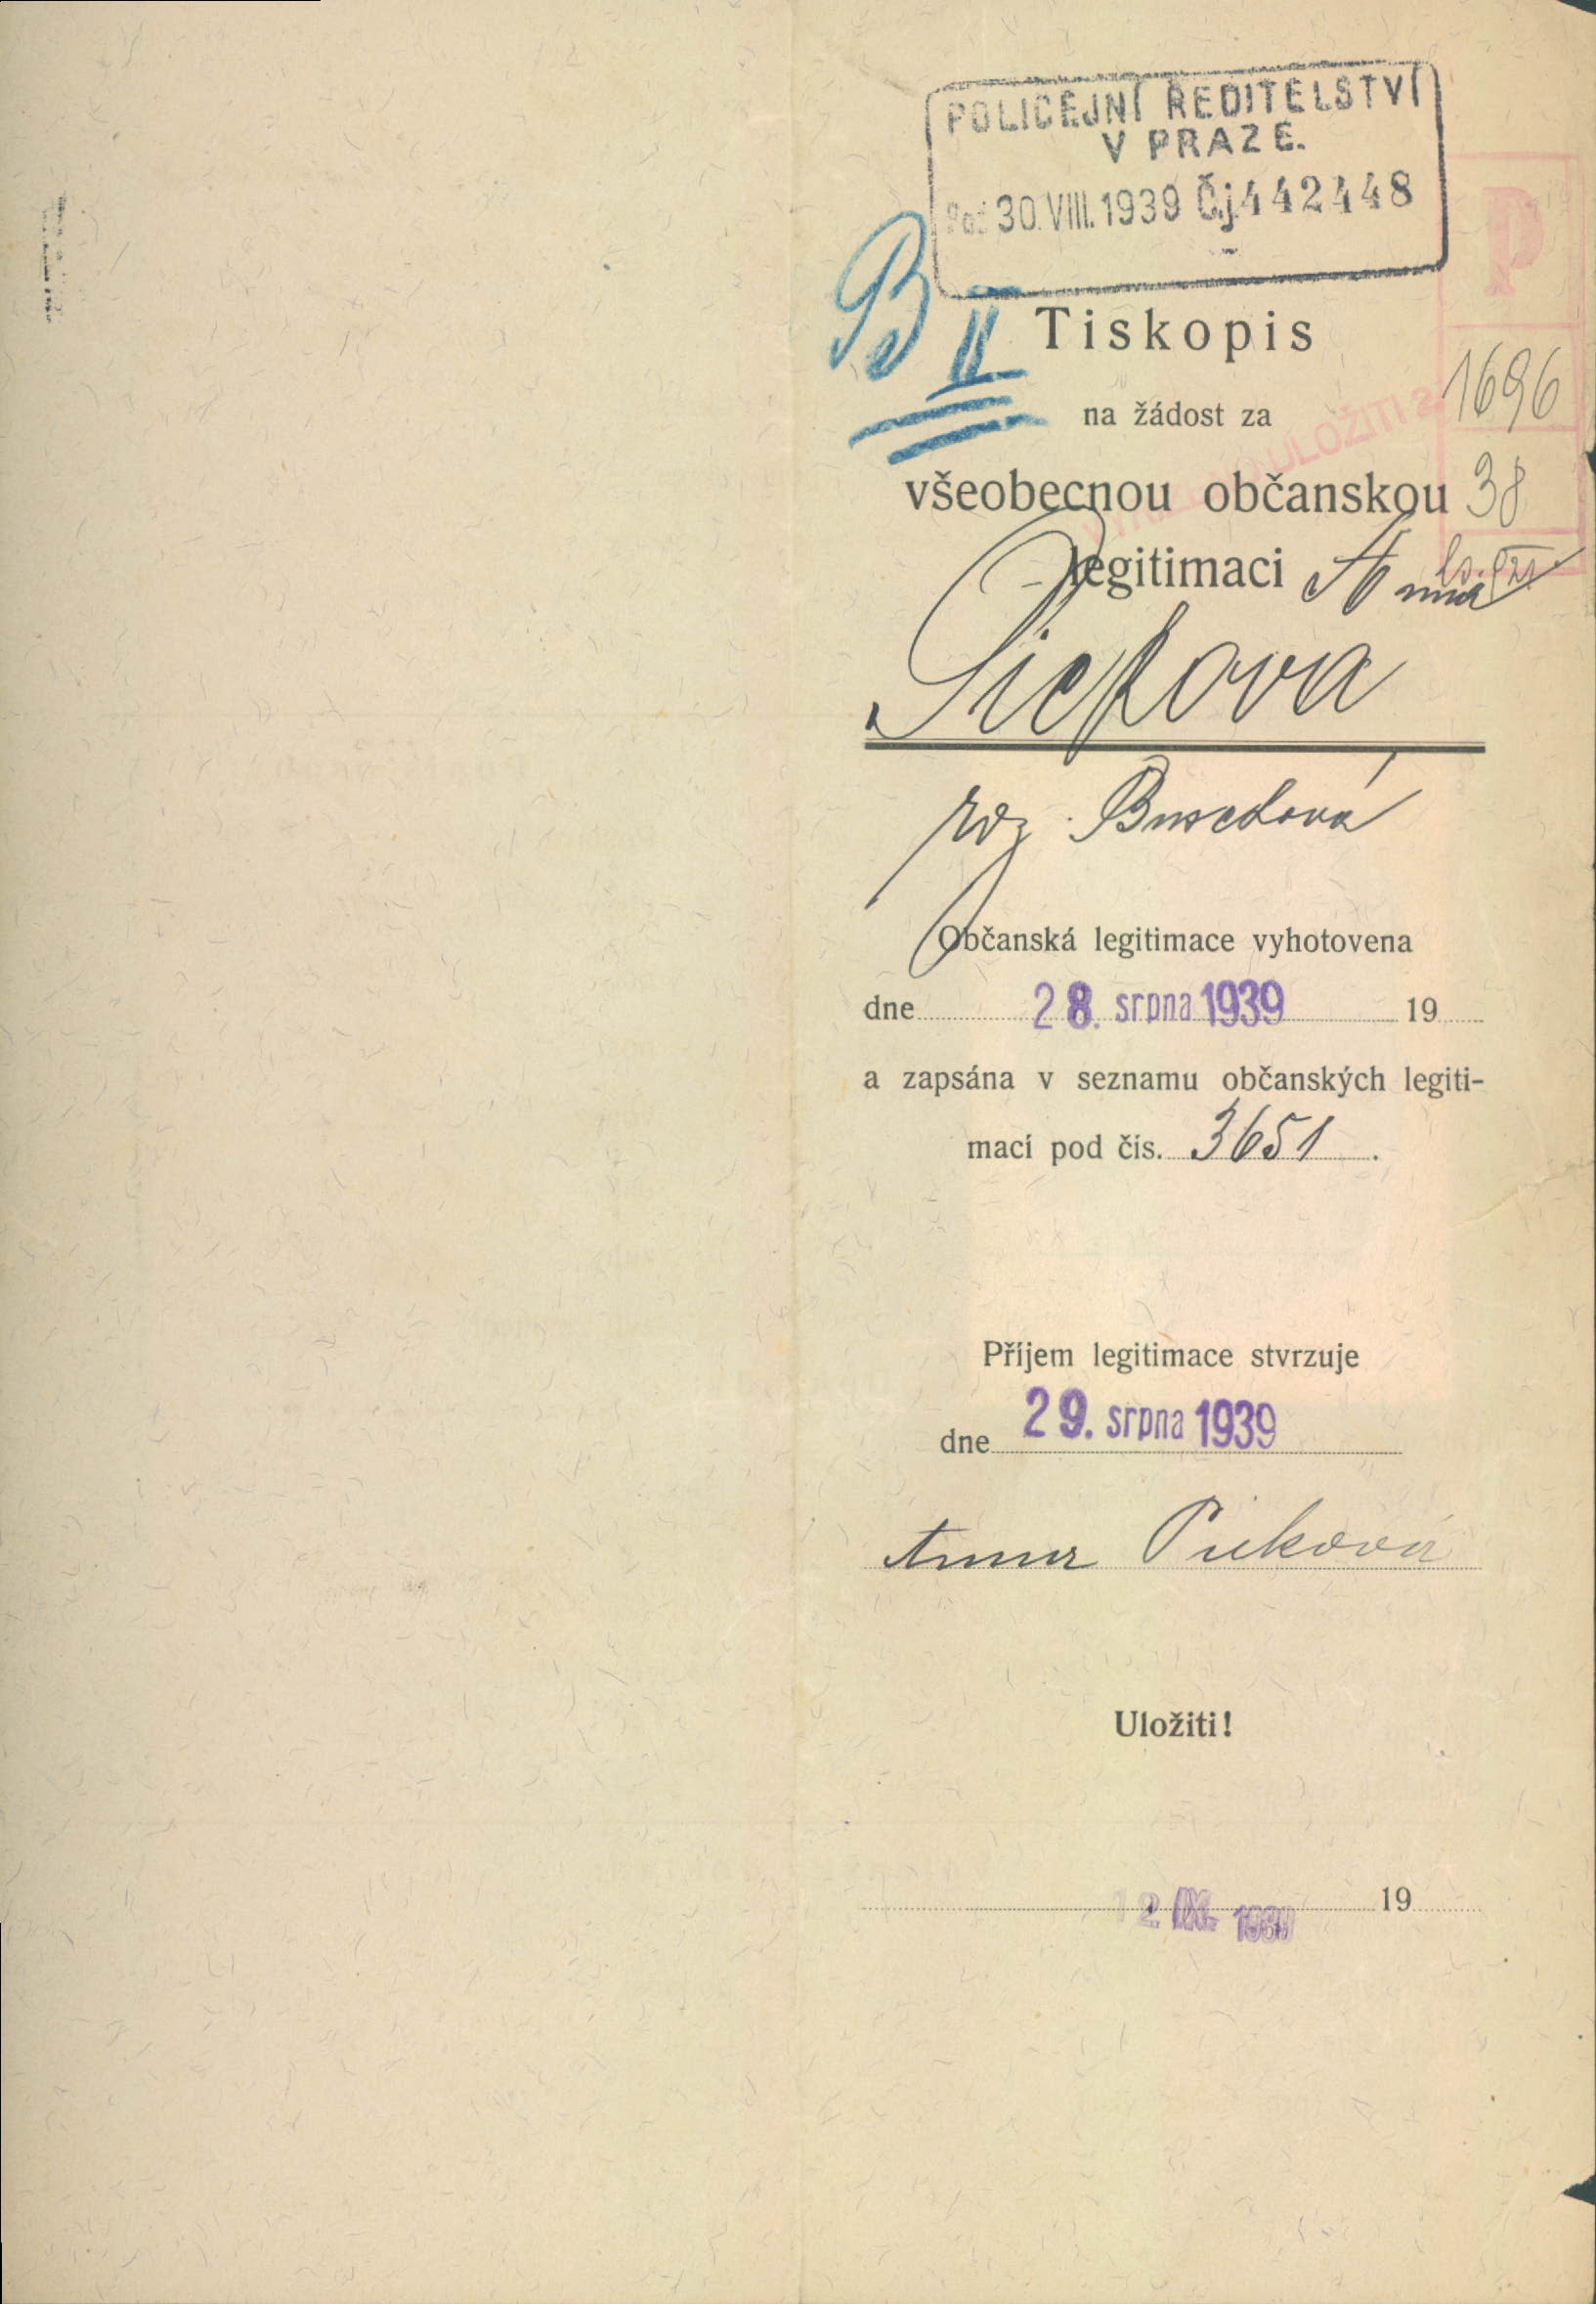 POLICEJNÍ ŘEDITELSTVÍ
V PRAZE.
30. VIII. 1939 Č.j. 442448
P
B II
Tiskopis
1696
na žádost za
ULOŽITI
všeobecnou občanskou
38
legitimaci Anna
Picková
roz.
Občanská legitimace vyhotovena
dne 28. srpna 1939 19
a zapsána v seznamu občanských legiti-
mací pod čís. 3651.
Příjem legitimace stvrzuje
dne 29. srpna 1939
Anna Picková
Uložiti!
12 IX. 1939 19